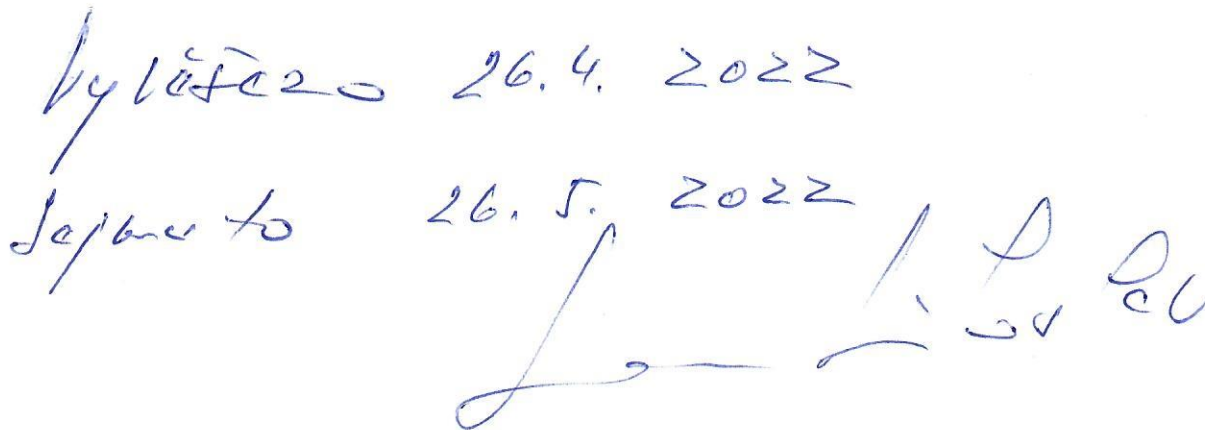 Vyvěšeno 26.4. 2022
Sejmuto 26. 5. 2022